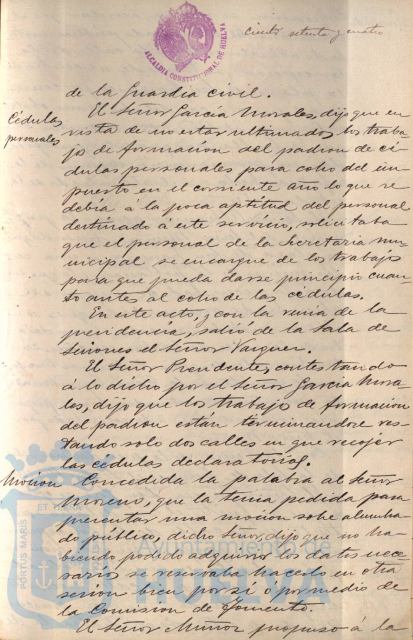 ciento setenta y cuatro
ALCALDIA CONSTITUCIONAL DE HUELVA
de la Guardia civil.
Cédulas
personales
El Señor García Morales, dijo que en
vista de no estar ultimados los traba-
jo de formacion del padron de cé-
dulas personales para cobro del im-
puesto en el corriente año lo que se
debía á la poca aptitud del personal
destinado á este servicio, solicitaba
que el personal de la Secretaria mu-
nicipal se encargue de los trabajos
para que pueda darse principio cuan-
to antes al cobro de las cédulas.
En este acto, y con la venia de la
presidencia, salió de la Sala de
Sesiones el Señor Vazquez.
El Señor Presidente, contestando
á lo dicho por el Señor García Mora-
les, dijo que los trabajo de formacion
del padron están terminandose res-
tando solo dos calles en que recojer
las cédulas declaratorias.
Mocion
Concedida la palabra al Señor
Moreno, que la tenia pedida para
presentar una mocion sobre alumbra-
do público, dicho Señor, dijo que no ha-
biendo podido adquirir los datos nece-
sarios se reservaba hacerlo en otra
sesion bien por si ó por medio de
la Comision de Fomento.
El Señor Muñoz propuso á la
PORTUS MARIS